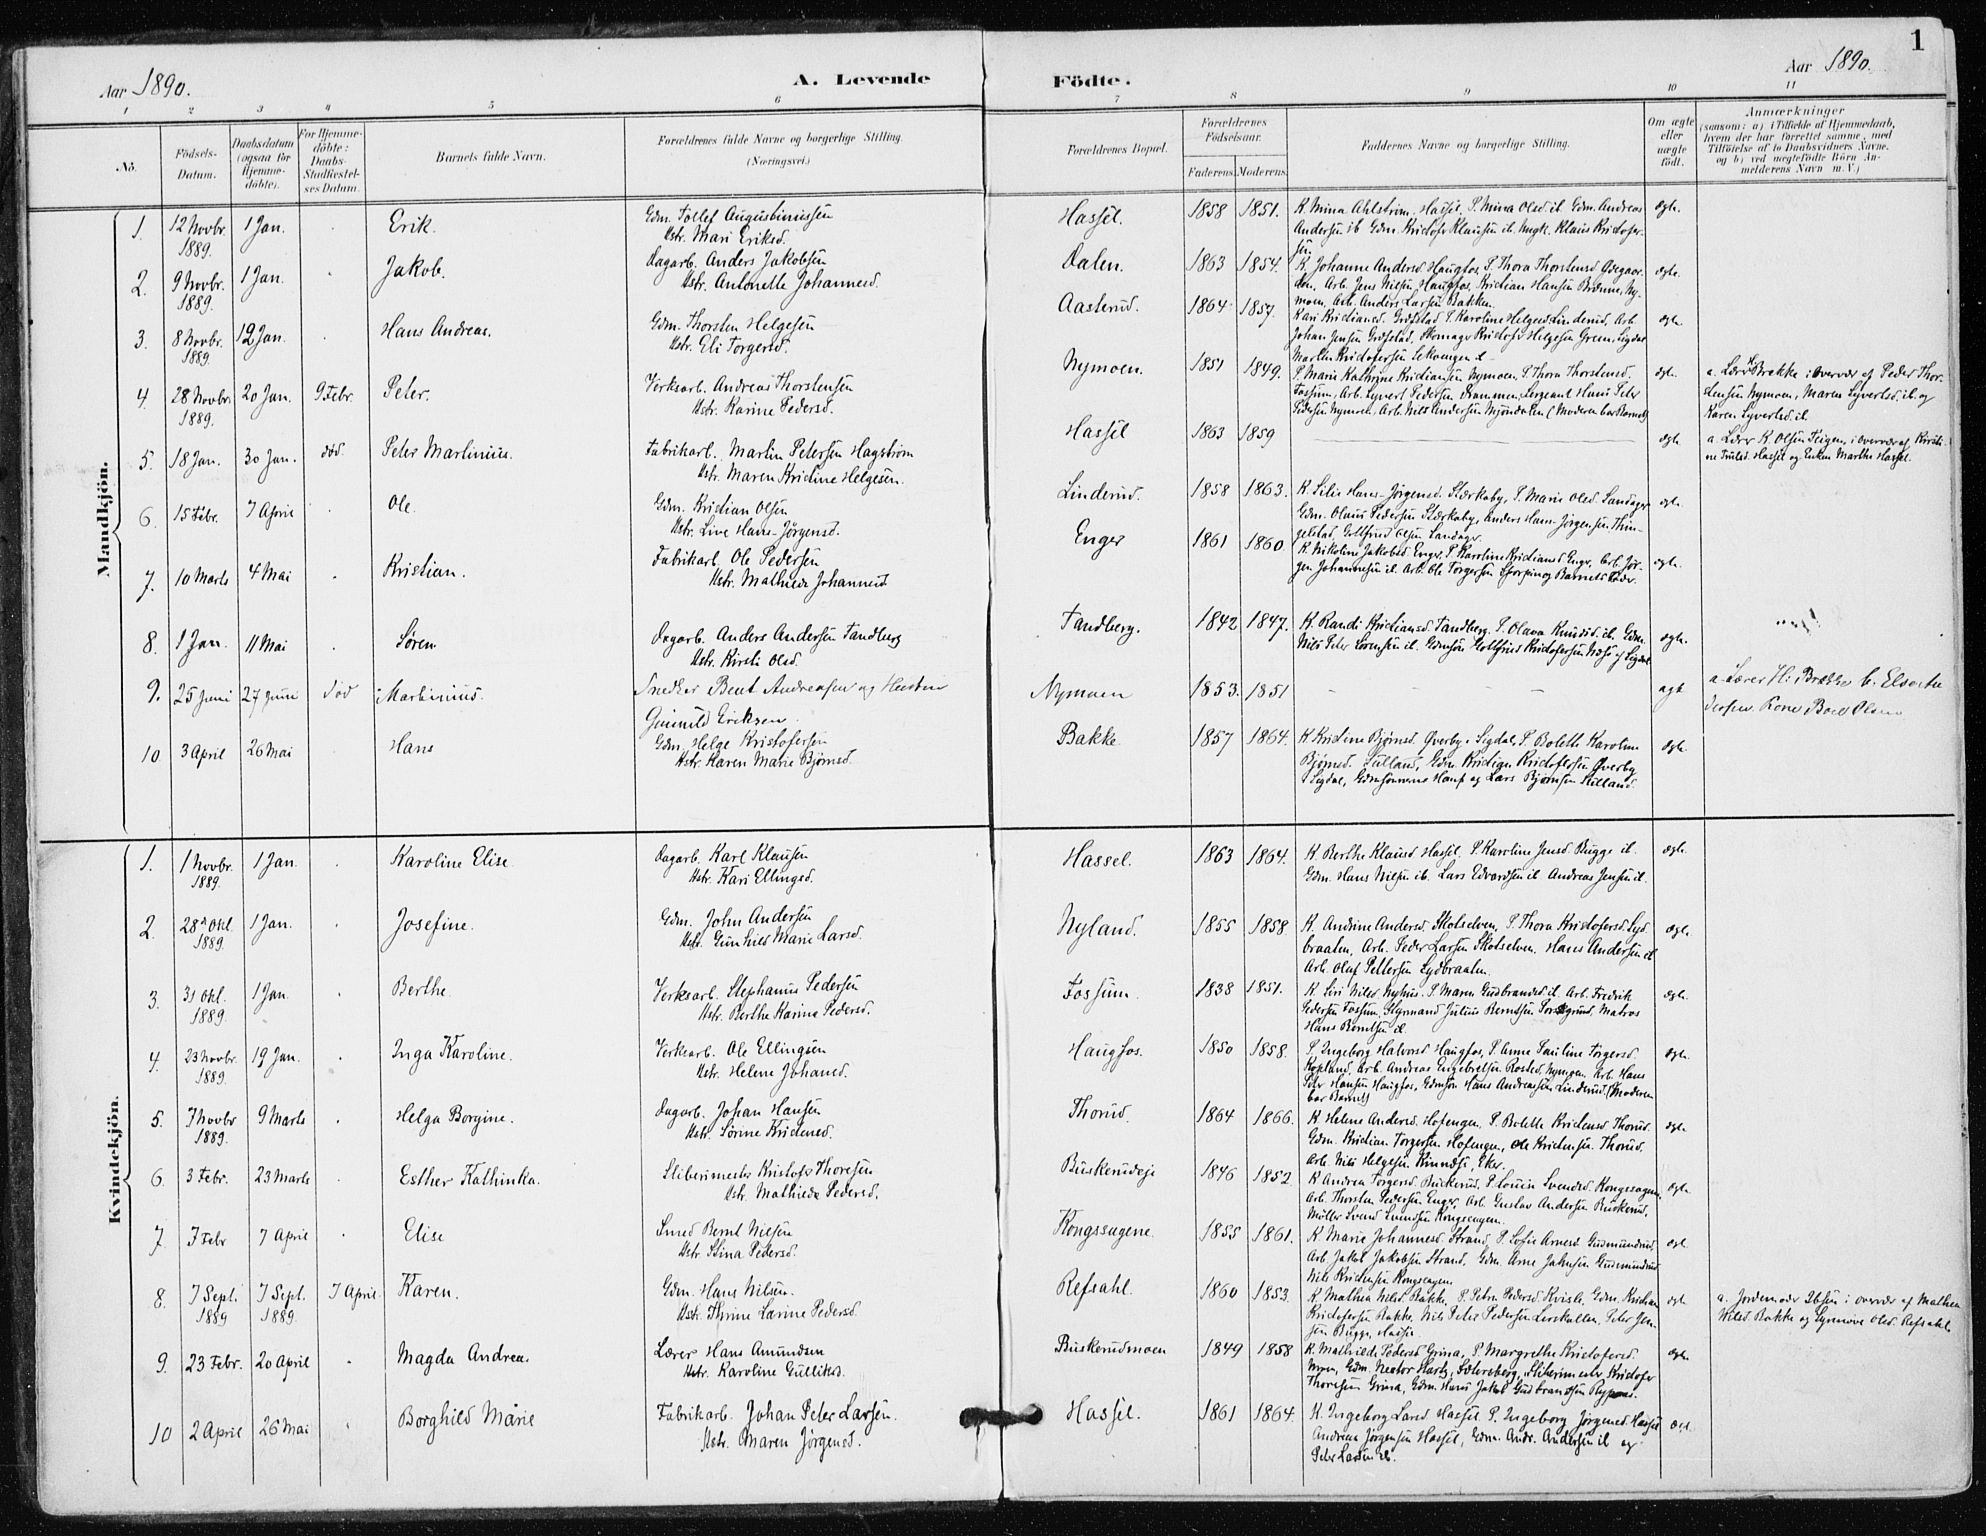 1
Aar 1890.
A. Levende Födte.
Aar 1890.
1 2 3 4 5 6 7 8 9 10 11
No.
Födsels-Datum.
Daabsdatum (ogsaa for Hjemme-döbte).
For Hjemme-döbte: Daabs-Stadfæstel-ses Datum.
Barnets fulde Navn.
Forældrenes fulde Navne og borgerlige Stilling. (Næringsvei.)
Forældrenes Bopæl.
Forældrenes Födselsaar.
Faderens. Moderens.
Faddernes Navne og borgerlige Stilling.
Om ægte eller uægte födt.
Anmærkninger (saasom: a) i Tilfælde af Hjemmedaab, hvem der har forrettet samme, med Tilföielse af to Daabsvidners Navne. og b) ved uægtefödte Börn An-melderens Navn m. V.)
Mandkjön.
1. 12 Novbr. 1889. 1 Jan. Erik. Gdm. Tollef Augustinussen Hstr. Mari Eriksd. Hassel. 1858 1851. K. Mina Ahlström. Hassel. P. Mina Olsd. ib. Gdm. Andreas
Andersen ib. Gdm. Kristofer Klausen ib. Ungk. Klaus Kristofer-
sen. ægte.
2. 9 Novbr. 1889. 1 Jan. Jakob. Dagarb. Anders Jakobsen Hstr. Antonette Johannesd. Dalen. 1863 1854. K. Johanne Andersd. Haugfos, P. Thora Thorstensd. Ødegaar-
den, Arb. Jens Nilsen Haugfos, Kristian Hansen Brænne, Ny-
moen, Arb. Anders Larsen Bakken. ægte.
3. 8 Novbr. 1889. 12 Jan. Hans Andreas. Gdm. Thorsten Helgesen Hstr. Eli Torgersd. Aasterud. 1864 1857. Kari Kristiansd. Grøfstad P. Karoline Helgesd. Linderud, Arb.
Johan Jensen Grøfstad, Skomager Kristofer Helgesen Green, Sigdal
Martin Kristofersen ægte.
4. 28 Novbr. 1889. 20 Jan. 9 Febr. Peter. Verksarb. Andreas Thorstensen Hstr. Karine Pedersd. Nymoen. 1851 1849. P. Marie Kathrine Kristiansen Nymoen, P. Thora Thorstensd.
Fossum, Arb. Syvert Pedersen Drammen, Sergeant Hans Peter
Pedersen Nymoen, Arb. Nils Andersen Mjøndalen (Moderen bar Barnet) ægte. a. Lærer Brekke i Overvær af Peder Thor-
stensen Nymoen, Maren Syvertsd. ib. og
Karen Syvertsd. ib.
5. 18 Jan. 30 Jan. død. Peter Martinius. Fabrikarb. Martin Petersen Hagstrøm Hstr. Maren Kristine Helgesen. Hassel 1863 1859 ægte. a. Lærer K. Olsen Teigen, i Overvær af Kirsti-
ne Trulsd. Hassel og Enken Marthe Hassel.
6. 15 Febr. 7 April Ole. Gdm. Kristian Olsen Hstr. Live Hans-Jørgensd. Linderud. 1858 1863. K. Silie Hans-Jørgensd. Stærkeby, P. Marie Olsd. Sandager
Gdm. Olaus Pedersen Stærkeby, Anders Hans-Jørgensen Thin-
gelstad, Gottfrid Olsen Sandager. ægte.
7. 10 Marts 4 Mai Kristian. Fabrikarb. Ole Pedersen Hstr. Mathilde Johannesd. Enger 1861 1860. K. Nikoline Jakobsd. Enger, P. Karoline Kristiansd. Enger, Arb. Jør-
gen Johannesen ib. Arb. Ole Torgersen og Barnets Fader. ægte.
8. 1 Jan. 11 Mai Søren Dagarb. Anders Andersen Tandberg Hstr. Kirsti Olsd. Tandberg. 1842 1847. K. Randi Kristiansd. Tandberg. P. Olava Knudsd. ib. Gdm.
Nils Peter Sørensen ib. Gdmsøn Gottfried Kristofersen Næss af Sigdal. ægte.
9. 25 Juni 27 Juni død Martinius. Snedker Bent Andreasen og Hustru Gunild Eriksen. Nymoen 1853. 1851 ægt a. Lærer H. Brekke b. Else
Kone Olsen
10 3 April 26 Mai Hans Gdm. Helge Kristofersen Hstr. Karen Marie Bjørnsd. Bakke 1857 1864. K. Kristine Bjørnsd. Øverby i Sigdal, P. Bolette Karoline
Bjørnsd. Tulland, Gdm. Kristian Kristofersen Øverby
Sigdal, Gdmsønnerne Hans og Lars Bjørnsen Killand. ægte.
Kvindekjön.
1. 1 Novbr. 1889. 1 Jan. Karoline Elise. Dagarb. Karl Klausen Hstr. Kari Ellingsd. Hassel. 1863 1864. K. Berthe Klausd. Hassel. P. Karoline Jensd. Bugge ib.
Gdm. Hans Nilsen ib. Lars Edvardsen ib. Andreas Jensen ib. ægte.
2. 28de Okt. 1889. 1 Jan. Josefine. Gdm. John Andersen Hstr. Gunhild Marie Larsd. Nyland. 1855 1858. K. Andine Andersd. Skotselven, P. Thora Kristofersd. Lyd-
braaten, Arb. Peder Larsen Skotselven. Hans Andersen ib.
Arb. Olaf Pettersen Lydbraaten. ægte.
3. 31 Okt. 1889. 1 Jan. Berthe. Verksarb. Stephanus Pedersen Hstr. Berthe Karine Pedersd. Fossum. 1838 1851. K. Siri Nilsd. Nyhus. P. Maren Gudbrandsd. ib. Arb. Fredrik
Pedersen Fossum, Styrmand Julius Berntsen Porsgrund, Matros
Hans Berntsen ib. ægte.
4. 23 Novbr. 1889. 19 Jan. Inga Karoline. Verksarb. Ole Ellingsen Hstr. Helene Johansd. Haugfos. 1850 1858. P. Ingeborg Halvorsd. Haugfos, P. Anne Pauline Torgersd.
Kopland, Arb. Andreas Engebretsen Rosted, Nymoen. Arb. Hans
Peter Hansen Haugfos, Gdmsøn Hans Andreassen Linderud (Moderen
bar Barnet) ægte.
5. 7 Novbr 1889. 9 Marts Helga Borgine. Dagarb. Johan Hansen Hstr. Sørine Kristensd. Thorud. 1864 1866. K. Helene Andersd. Hofengen, P. Bolette Kristensd. Thorud.
Gdm. Kristian Torgersen Hofengen, Ole Kristensen Thorud,
Arb. Nils Helgesen Eker. ægte.
6. 3 Febr. 23 Marts Esther Kathinka. Sliberimester Kristofer Thoresen Hstr. Mathilde Pedersd. Buskerudeje 1846 1852 K. Andrea Torgersd. Buskerud, P. Louise Svendsd. Kongssagene,
Arb. Thorsten Pedersen Enger, Arb. Gustav Andersen Buskerud,
Møller Svend Svendsen Kongssagen. ægte.
7. 7 Febr 7 April Elise Smed Bernt Nilsen Hstr. Stina Pedersd. Kongssagene. 1855 1861. K. Marie Johannesd. Strand, P. Sofie Arnesd. Gudmundrud,
Arb. Jakob Jakobsen Strand, Gdm. Arne Jahnsen Gudmundrud
Nils Kristensen Kongssagen. ægte.
8. 7 Sept. 1889 7 Sept. 1889. 7 April. Karen. Gdm. Hans Nilsen. Hstr. Thrine Larine Pedersd. Refsahl. 1860 1853. K. Mathea Nilsd. Bakke, P. Petra Pedersd. Kvisle, Gdm. Kristian
Kristofersen Bakke, Nils Peter Pedersen Lerskallen, Peter Jen-
sen Bugge, Hassel. ægte a. Jordemoder Ibsen i Overvær af Mathea
Nilsd. Bakke og Synnøve Olsd. Refsahl.
9. 23 Febr. 20 April Magda Andrea. Lærer Hans Amundsen Hstr. Karoline Gulliksd. Buskerudmoen 1849 1858 K. Mathilde Pedersd. Grina, P. Margrethe Kristofersd.
Moen, Gdm. Nector Hartz, Sætersberg, Sliberimester Kristofer
Thoresen Grina, Gdm. Hans Jakob Gudbrandsen ægte.
10 2 April 26 Mai Borghild Marie Fabrikarb. Johan Peter Larsen. Hstr. Maren Jørgensd. Hassel. 1861 1864. K. Ingeborg Larsd. Hassel. P. Ingeborg Jørgensd. Hassel
Andreas Jørgensen Hassel, Gdm. Andr. Andersen ib. og
Peter Larsen ib. ægt.